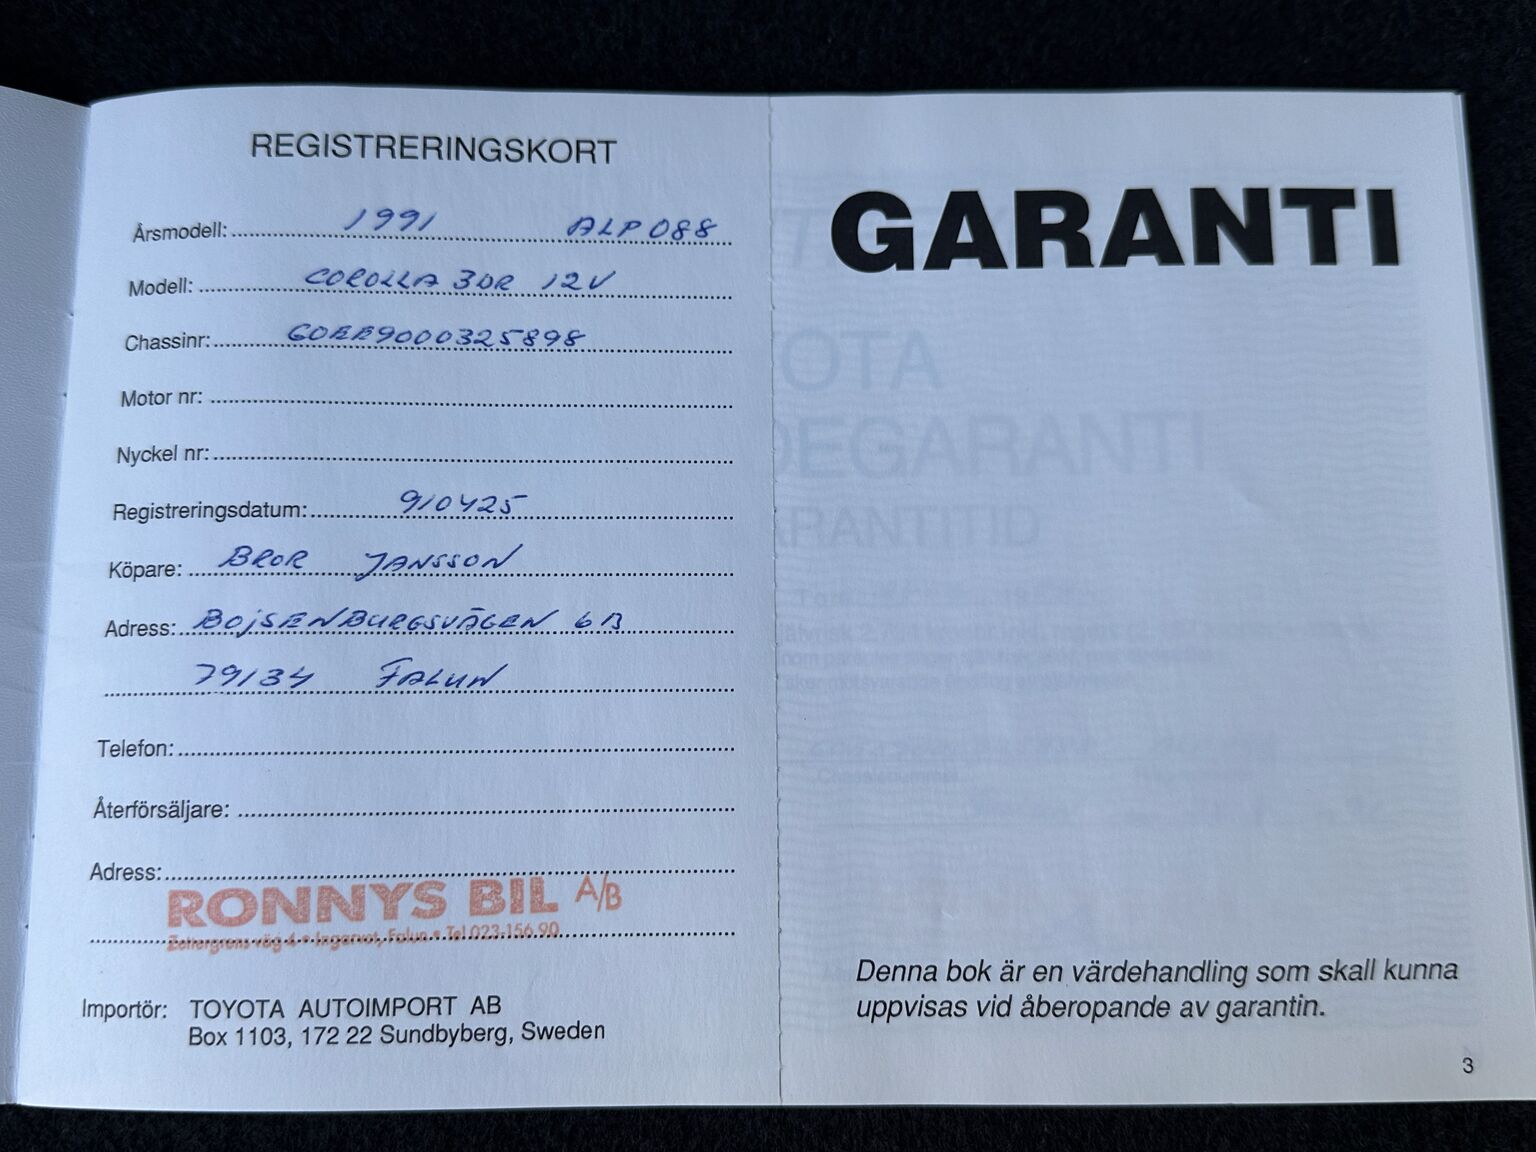 REGISTRERINGSKORT
Årsmodell: 1991 ALP088
Modell: COROLLA 3DR 12V
Chassinr:
Motor nr:
Nyckel nr:
Registreringsdatum: 910425
Köpare: BROR JANSSON
Adress: BOJSENBURGSVÄGEN 6B
79134 FALUN
Telefon:
Återförsäljare:
Adress:
RONNYS BIL A/B
Zettergrens väg 4 • Ingarvet, Falun • Tel 023-156 90
Importör: TOYOTA AUTOIMPORT AB
Box 1103, 172 22 Sundbyberg, Sweden
GARANTI
Denna bok är en värdehandling som skall kunna
uppvisas vid åberopande av garantin.
3